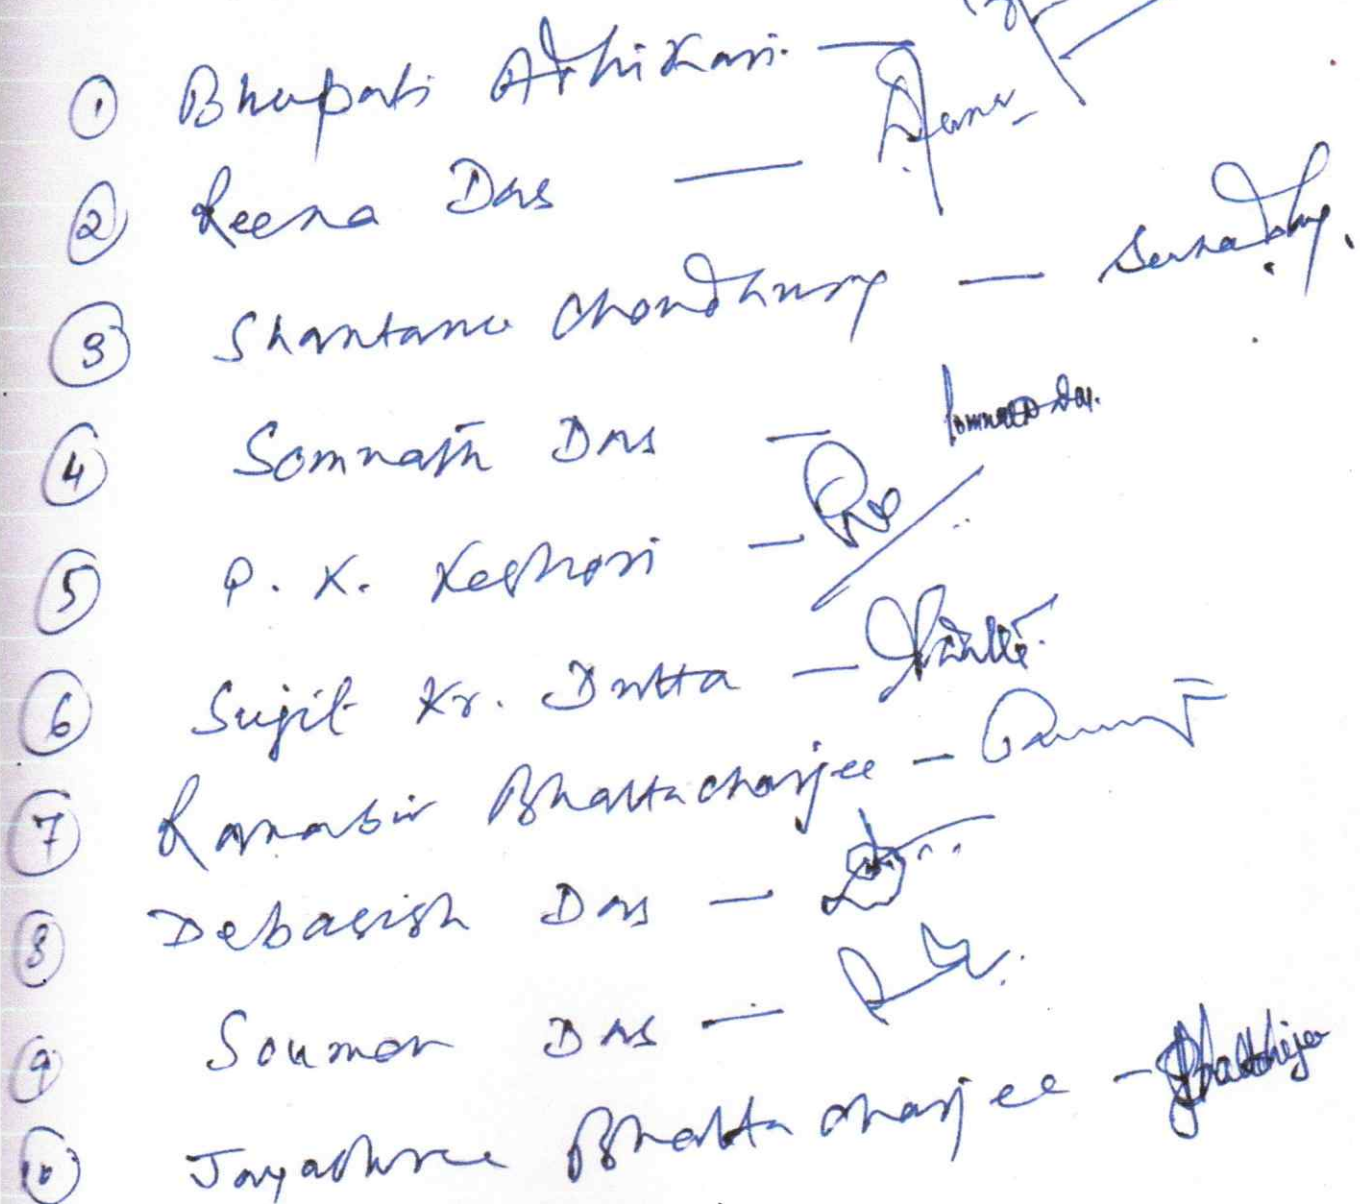 1 Bhupati Adhikari. —
2 Reena Das —
3 Shantanu Choudhury —
4 Somnath Das — Somnath Das.
5 P. K. Keshari —
6 Sujit Kr. Dutta —
7 Ranabir Bhattacharjee —
8 Debasish Das —
9 Souman Das —
10 Jayashree Bhattacharjee —